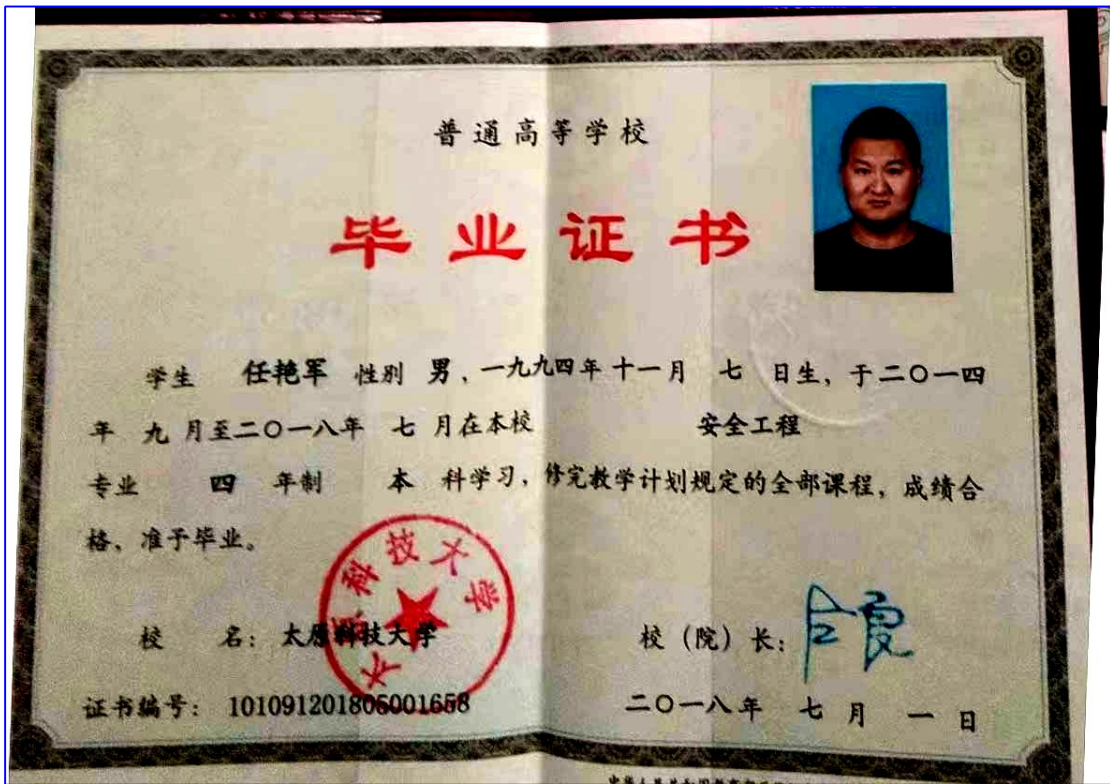 普通高等学校
毕业证书
学生 任艳军 性别 男，一九九四年十一月 七 日生，于二〇一四
年 九 月至二〇一八年 七 月在本校 安全工程
专业 四 年制 本 科学习，修完教学计划规定的全部课程，成绩合
格，准予毕业。
太原科技大学
校 名：太原科技大学 校（院）长：
证书编号：101091201805001658 二〇一八年 七 月 一 日